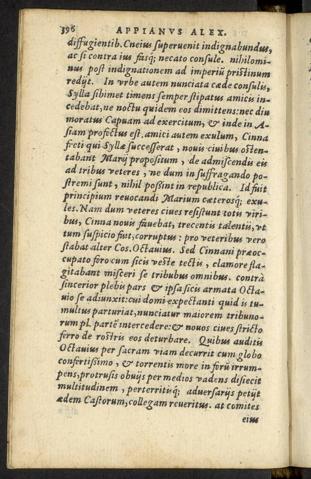 396 APPIANVS ALEX.
diffugientib. Cneius superuenit indignabundus,
ac si contra ius fasq; necato consule. nihilomi-
nus post indignationem ad imperiū pristinum
redijt. In vrbe autem nunciata cæde consulis,
Sylla sibimet timens semper stipatus amicis in-
cedebat, ne noctu quidem eos dimittens: nec diu
moratus Capuam ad exercitum, & inde in A-
siam profectus est. amici autem exulum, Cinna
freti qui Syllæ successerat, nouis ciuibus osten-
tabant Marij propositum, de admiscendis eis
ad tribus veteres, ne dum in suffragando po-
stremi sunt, nihil possint in republica. Id fuit
principium reuocandi Marium cæterosq; exu-
les. Nam dum veteres ciues resistunt totis viri-
bus, Cinna nouis fauebat, trecentis talentis, vt
tum suspicio fuit, corruptus: pro veteribus vero
stabat alter Cos. Octauius. Sed Cinnani præoc-
cupato foro cum sicis veste tectis, clamore fla-
gitabant misceri se tribubus omnibus. contrà
sincerior plebis pars & ipsa sicis armata Octa-
uio se adiunxit: cui domi expectanti quid is tu-
multus parturiat, nunciatur maiorem tribuno-
rum pl. partē intercedere: & nouos ciues stricto
ferro de rostris eos deturbare. Quibus auditis
Octauius per sacram viam decurrit cum globo
confertissimo, & torrentis more in forū irrum-
pens, protrusis obuijs per medios vadens disiecit
multitudinem, perterritisq; aduersarijs petijt
ædem Castorum, collegam reueritus. at comites
eius